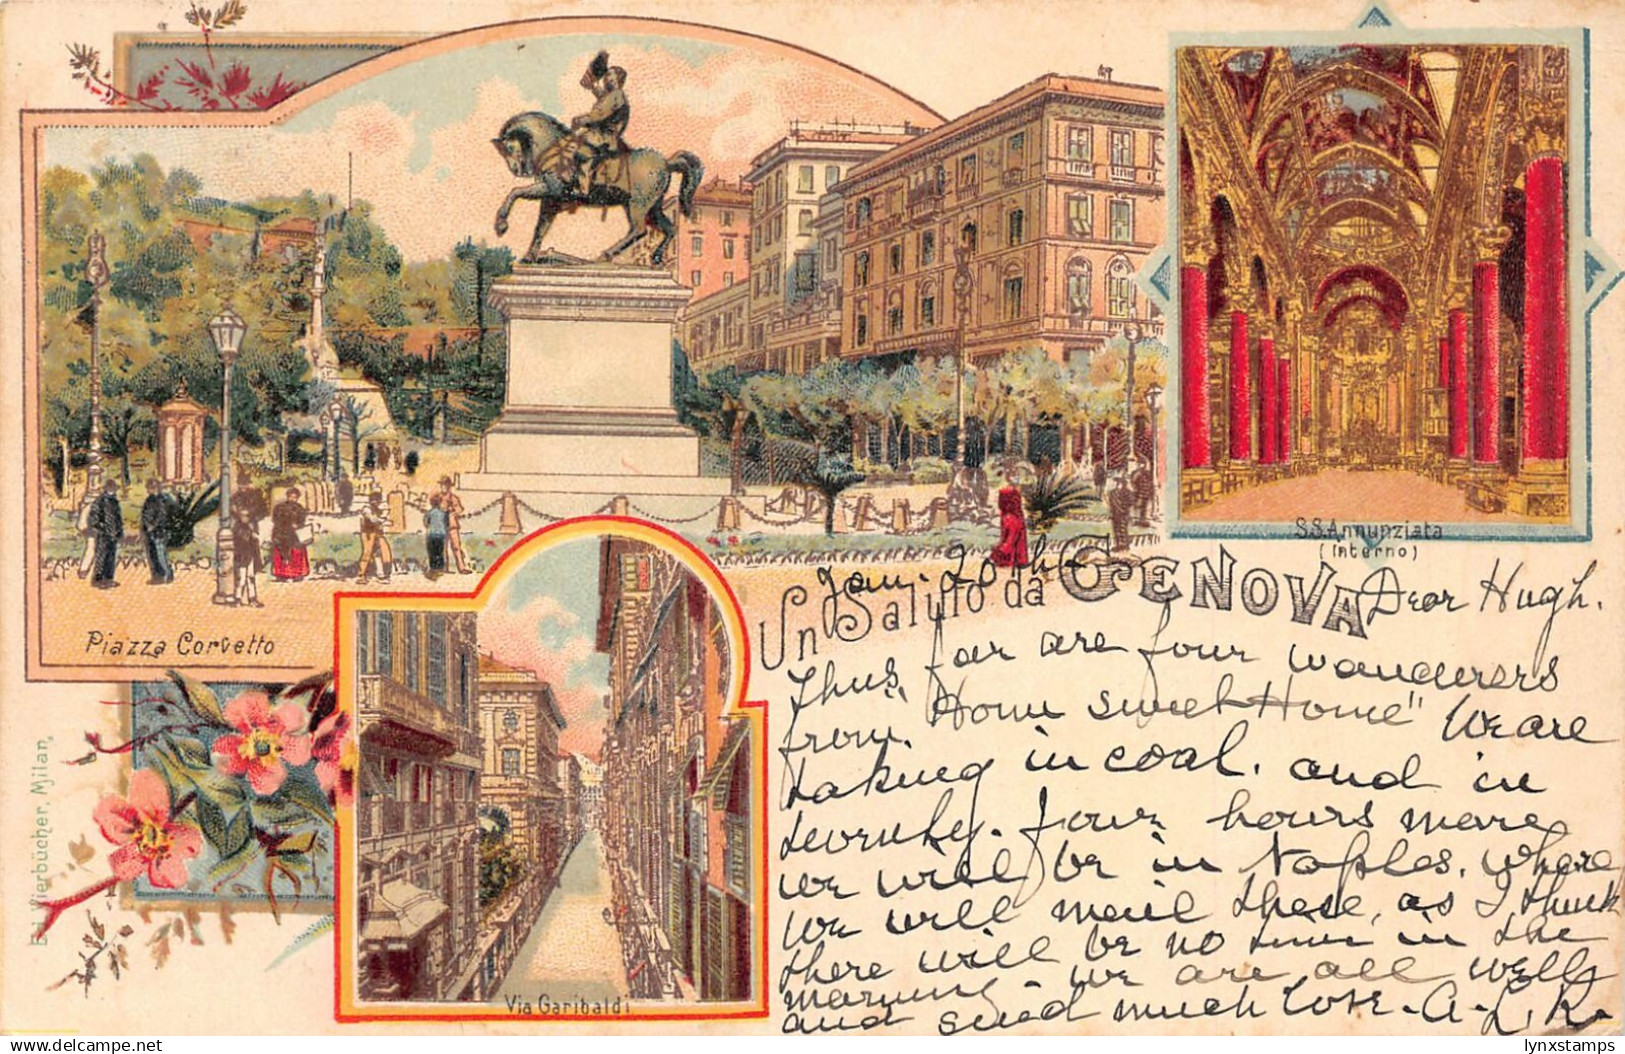 Piazza Corvetto
S.S. Annunziata
(Interno)
Un Saluto da GENOVA
Via Garibaldi
Ed. Vierbücher, Milan,
Jan. 20th
Dear Hugh.
Thus far are four wanderers
from "Home sweet Home" We are
taking in coal. and in
twenty-four hours more
we will be in Naples. where
we will mail these, as I think
there will be no time in the
morning - we are all well
and send much love - A. L. R.
lynxstamps